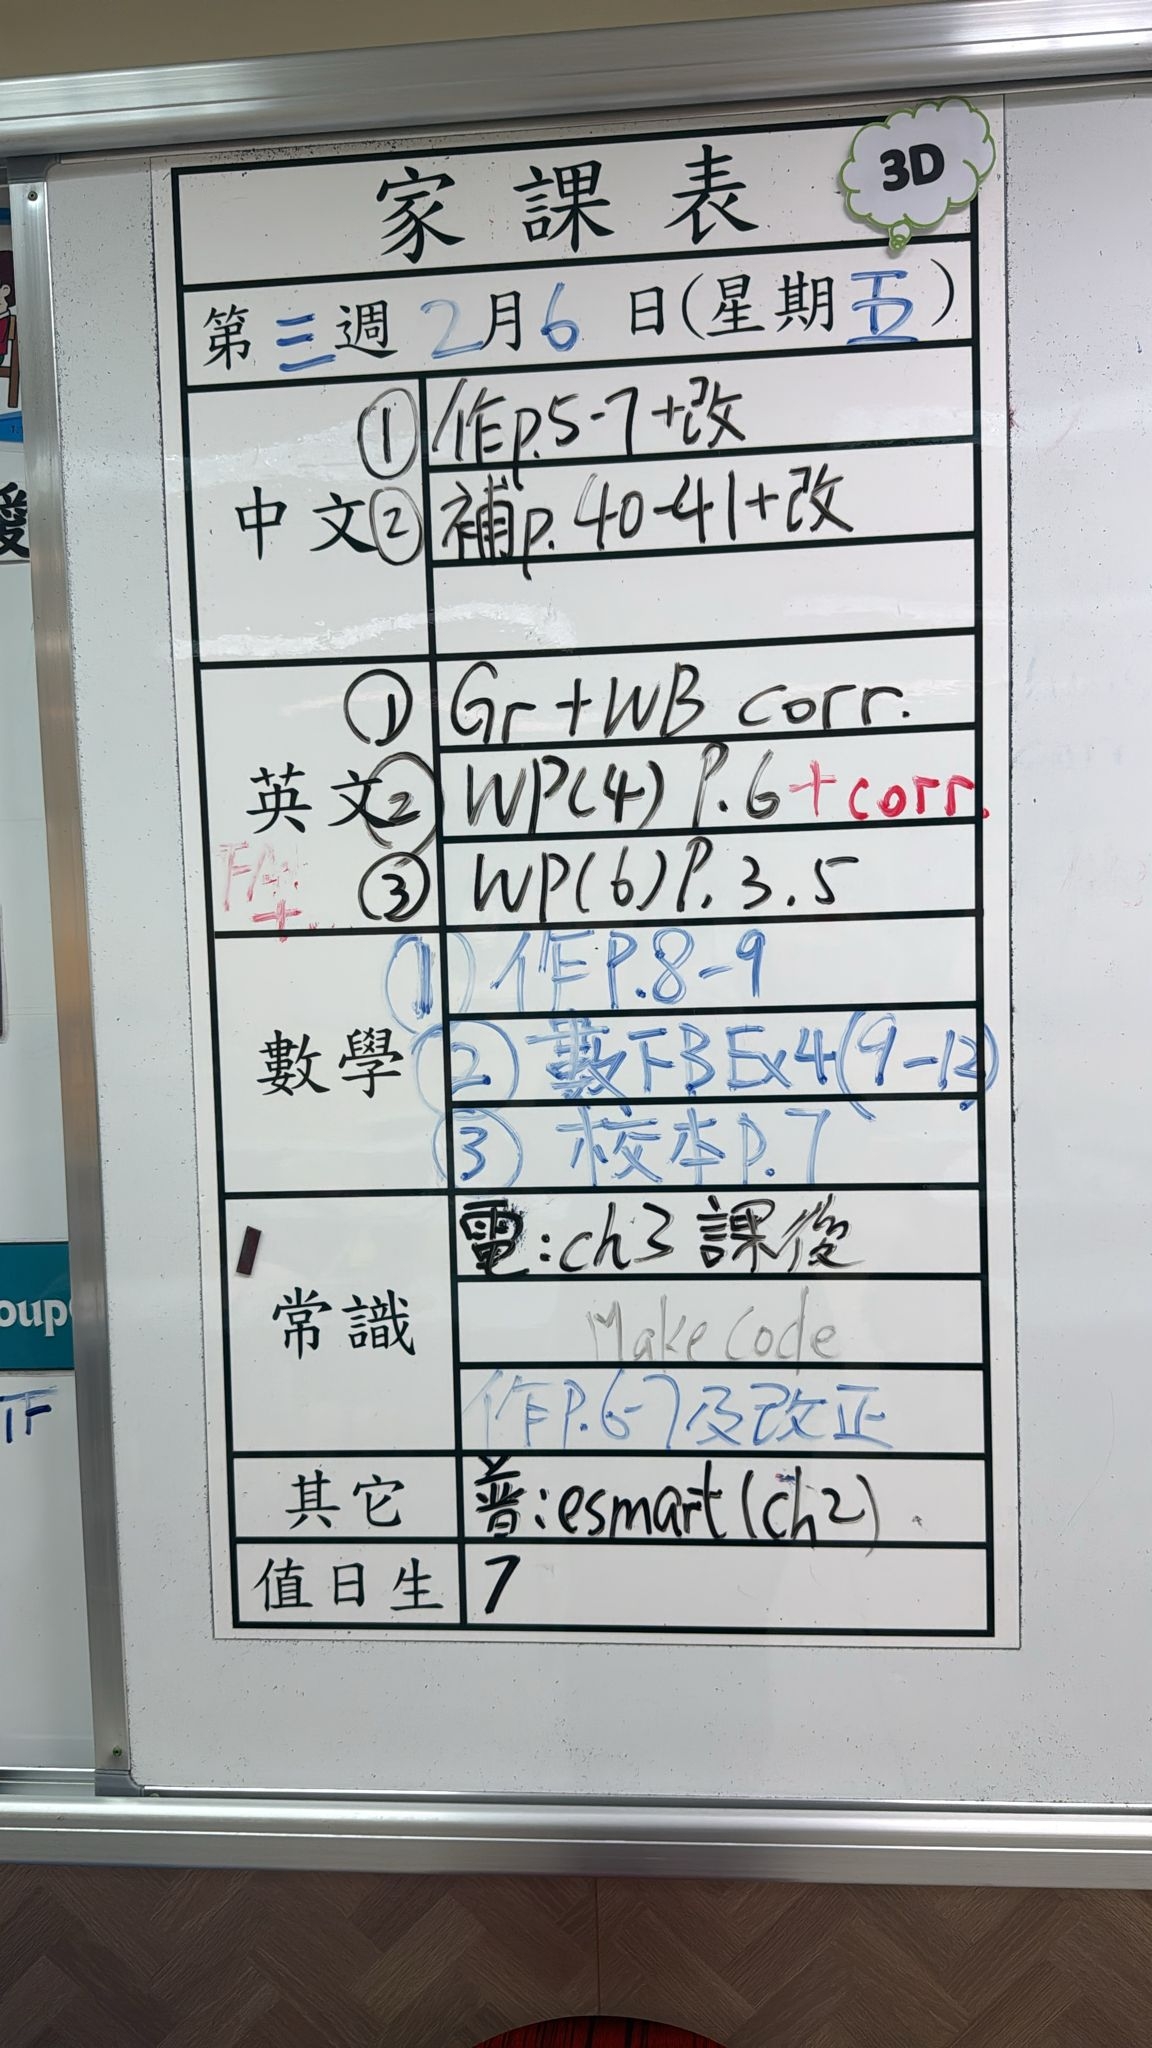 家課表
3D
第三週 2月6日(星期五)
中文
① 作p.5-7+改
② 補p.40-41+改
英文
① Gr+WB corr.
② WP(4) P.6+corr.
③ WP(6)P.3.5
數學
① 作P.8-9
② 數下B Ex4(9-12)
③ 校本P.7
常識
電:ch3 課後
Make code
作P.6-7及改正
其它
普:esmart(ch2).
值日生
7